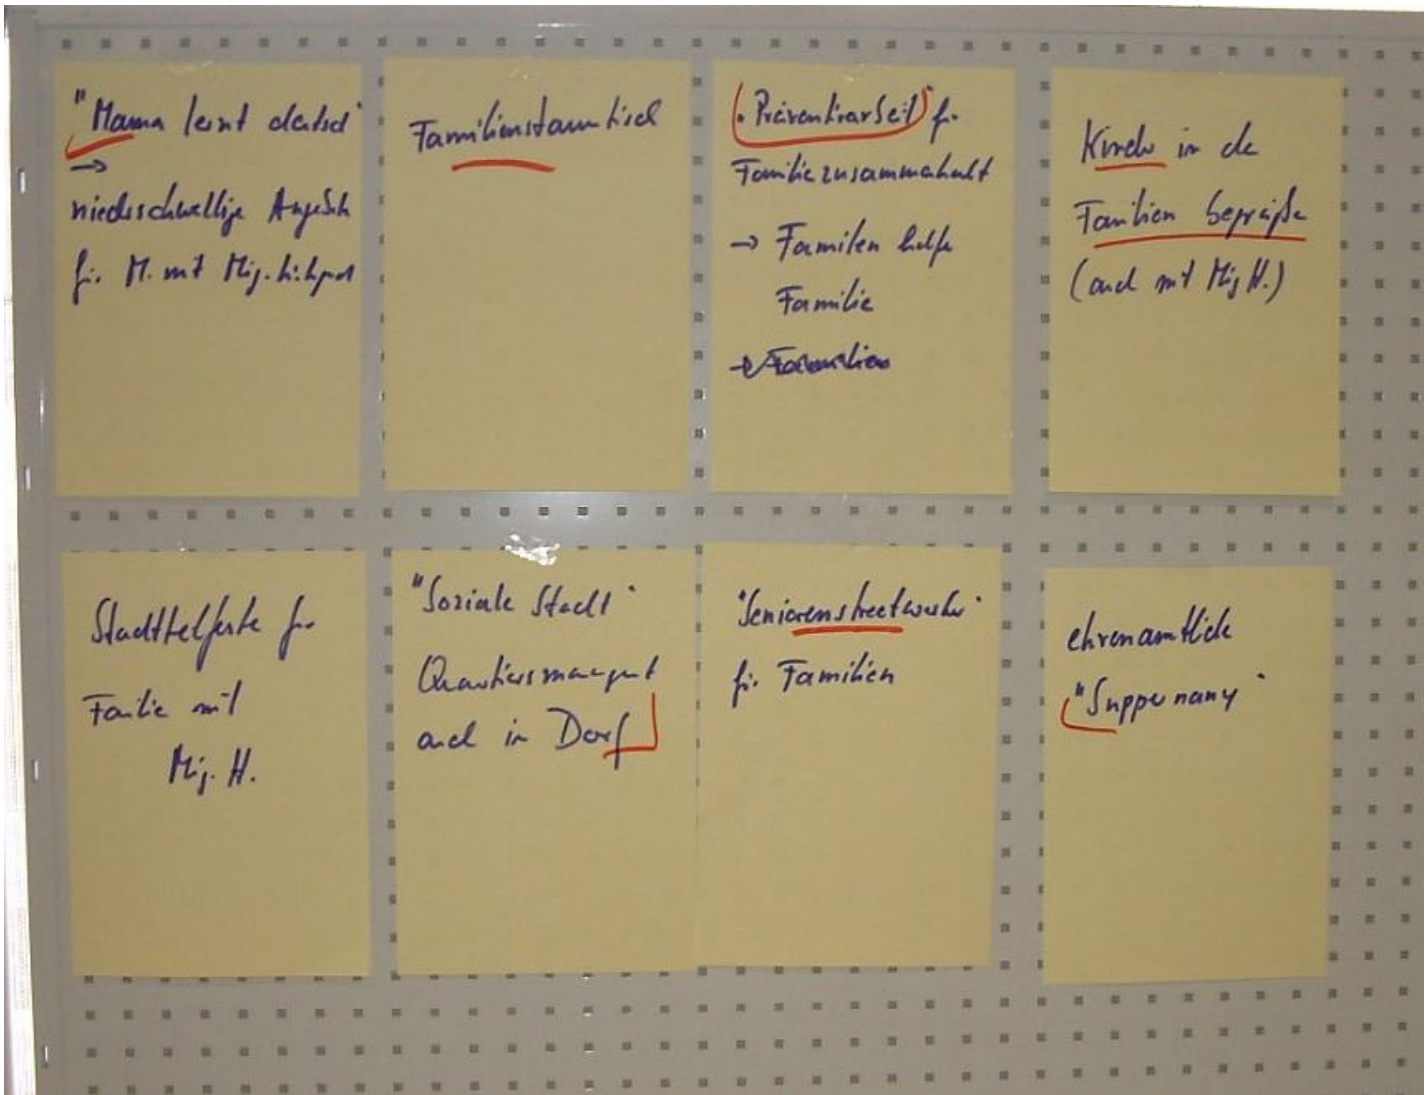 "Mama lernt deutsch"
→
niederschwellige Angebote
für M. mit Mig. hitgrd
Familienstammtisch
"Präventivarbeit" für
Familienzusammenhalt
→ Familien helfen
Familie
→ Familien
Kinder in den
Familien begrüßen
(auch mit Mig H.)
Stadtteilfeste für
Familie mit
Mig. H.
"Soziale Stadt"
Quartiersmanagemt
auch in Dorf
"Seniorenstreetworker"
für Familien
ehrenamtliche
"Suppernany"